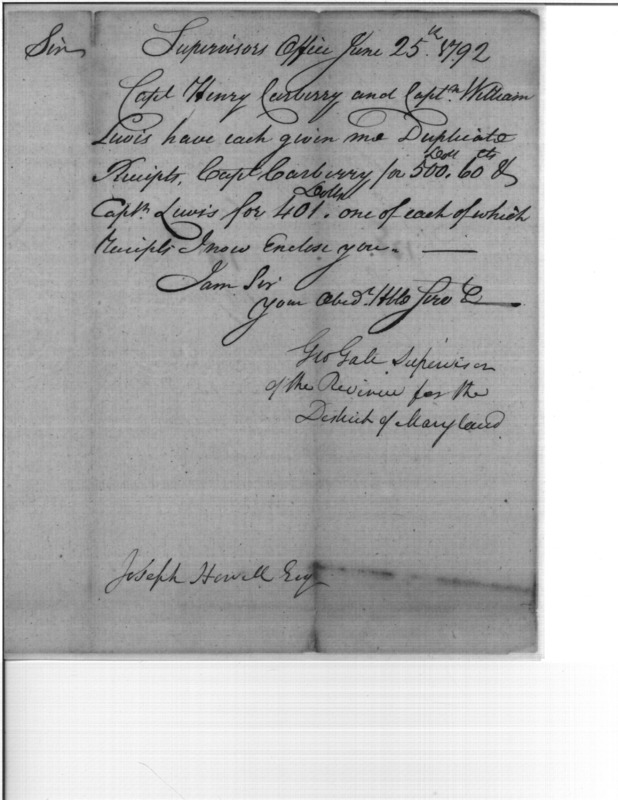 Supervisors Office June 25th 1792
Sir
Capt Henry Carberry and Captn. William
Lewis have each given me Duplicate
Receipts, Capt Carberry for 500 Doll. 60 cts &
Captn Lewis for 401 Dolls. one of each of which
receipts I now Enclose you. —
I am Sir
Your Obedt. Hble Servt
Geo Gale Supervisor
of the Revenue for the
District of Maryland
Joseph Howell Esq